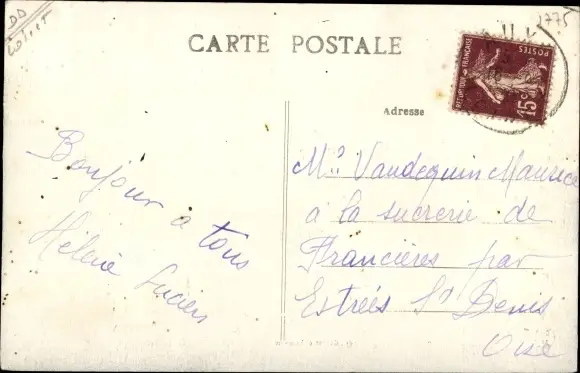 DD
Loiret
2775
CARTE POSTALE
REPUBLIQUE FRANÇAISE
POSTES
15c
Adresse
Bonjour a tous
Hélène Lucien
Mr Vandequin Maurice
à la sucrerie de
Francières par
Estrées St Denis
Oise